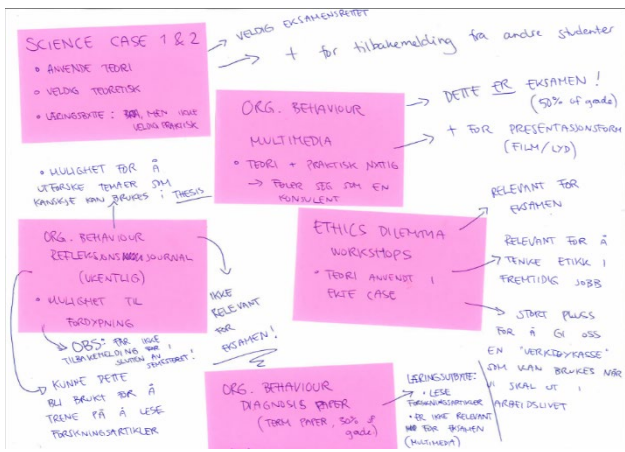 SCIENCE CASE 1 & 2
• ANVENDE TEORI
• VELDIG TEORETISK
• LÆRINGSBYTTE: BRA, MEN IKKE
VELDIG PRAKTISK
→ VELDIG EKSAMENSRETTET
→ + for tilbakemelding fra andre studenter
ORG. BEHAVIOUR
MULTIMEDIA
• TEORI + PRAKTISK NYTTIG
→ FØLER SEG SOM EN
KONSULENT
→ DETTE ER EKSAMEN!
(50% of grade)
→ + FOR PRESENTASJONSFORM
(FILM/LYD)
• MULIGHET FOR Å
UTFORSKE TEMAER SOM
KANSKJE KAN BRUKES I THESIS
ORG. BEHAVIOUR
REFLEKSJONSJOURNAL
(UKENTLIG)
• MULIGHET TIL
FORDYPNING
IKKE
RELEVANT
FOR
EKSAMEN!
→ OBS: FÅR IKKE
TILBAKEMELDING FØR I
SLUTTEN AV SEMESTERET!
→ KUNNE DETTE
BLI BRUKT FOR Å
TRENE PÅ Å LESE
FORSKNINGSARTIKLER
ETHICS DILEMMA
WORKSHOPS
• TEORI ANVENDT I
EKTE CASE
RELEVANT FOR
EKSAMEN
RELEVANT FOR Å
TENKE ETIKK I
FREMTIDIG JOBB
→ STORT PLUSS
FOR Å GI OSS
EN "VERKTØYKASSE"
SOM KAN BRUKES NÅR
VI SKAL UT I
ARBEIDSLIVET
ORG. BEHAVIOUR
DIAGNOSIS PAPER
(TERM PAPER, 50% of
grade)
LÆRINGSUTBYTTE:
• LESE
FORSKNINGSARTIKLER
• ER IKKE RELEVANT
FOR EKSAMEN
(MULTIMEDIA)